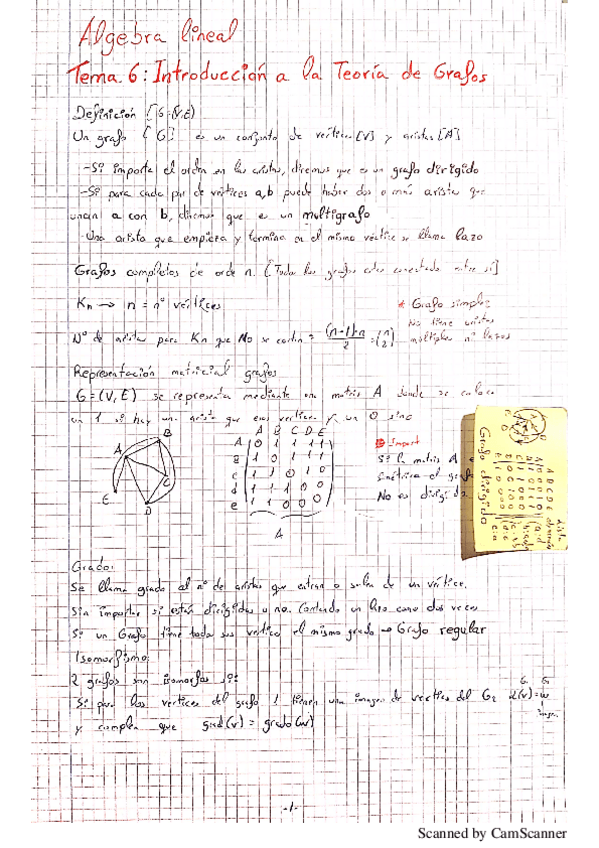 Algebra lineal
Tema. 6: Introducción a la Teoría de Grafos
Definición [G=(V,E)
Un grafo [G] es un conjunto de vértices [V] y aristas [A]
-Si importa el orden en las aristas, diremos que es un grafo dirigido
-Si para cada par de vértices a,b puede haber dos o más aristas que
unan a con b, diremos que es un multigrafo
-Una arista que empieza y termina en el mismo vértice se llama lazo
Grafos completos de orde n. [Todos los grafos estan conectados entre si]
Kn → n = nº vértices
* Grafo simple:
No tiene aristas
múltiples ni lazos
Nº de aristas para Kn que No se cortan = (n-1)·n/2 = (n 2)
Representación matricial grafos
G=(V, E) se representa mediante una matriz A donde se coloca
un 1 si hay un arista que esos vertices y un 0 sino
A B C D E
A 0 1 1 1 1
B 1 0 1 1 0
c 1 1 0 1 0
d 1 1 1 0 0
e 1 1 0 0 0
A
B
A
C
E
D
Import
Si la matriz A
simétrica el grafo
No es dirigido
Grafo dirigido
Grado:
Se llama grado al nº de aristas que entran o salen de un vértice.
Sin importar si están dirigidas o no. Contando un lazo como dos veces
Si un Grafo tiene todos sus vertices el mismo grado → Grafo regular
Isomorfismo:
2 grafos son isomorfos si:
Si para los vertices del grafo 1 tienen una imagen de vertices del G2 d(v)=w
imagen
y cumplen que grad(v) = grado(w)
-1-
Scanned by CamScanner